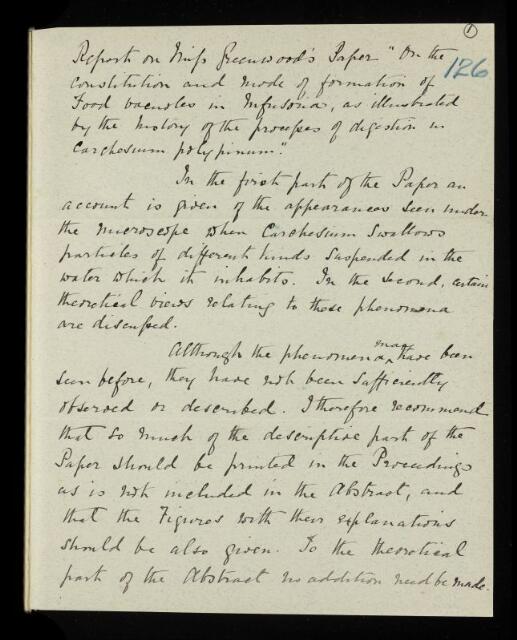 ①
126
Report on Miss Greenwood's Paper "On the
constitution and mode of formation of
Food vacuoles in Infusoria, as illustrated
by the history of the processes of digestion in
Carchesium polypinum".
In the first part of the Paper an
account is given of the appearances seen under
the microscope when Carchesium swallows
particles of different kinds suspended in the
water which it inhabits. In the second, certain
theoretical views relating to these phenomena
are discussed.
Although the phenomena may have been
seen before, they have not been sufficiently
observed or described. I therefore recommend
that so much of the descriptive part of the
Paper should be printed in the Proceedings
as is not included in the Abstract, and
that the Figures with their explanations
should be also given. To the theoretical
part of the Abstract no addition need be made.